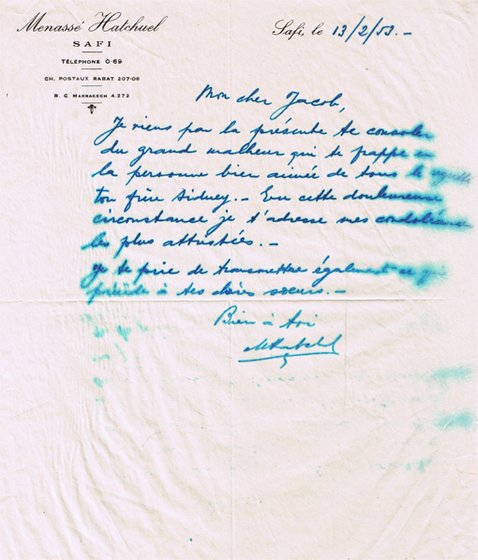 Menassé Hatchuel
SAFI
TÉLÉPHONE 0-69
CH. POSTAUX RABAT 207-08
R. C. MARRAKECH 4.272
Safi, le 13/2/53.-
Mon cher Jacob,
Je viens par la présente te consoler
du grand malheur qui te frappe en
la personne bien aimée de tous le regretté
ton frère Sidney.- En cette douloureuse
circonstance je t'adresse mes condoléances
les plus attristées.-
Je te prie de transmettre également ce qui
précède à tes chères sœurs.-
Bien à toi